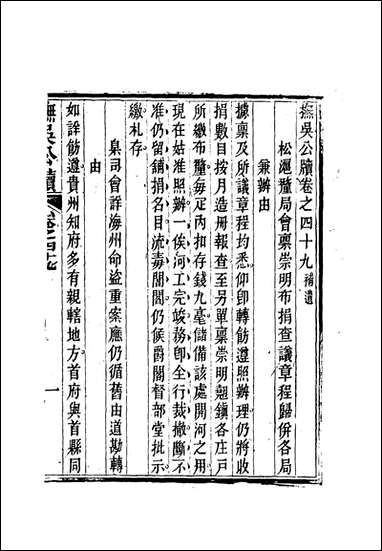 撫吳公牘卷之四十九補遺
松滬釐局會稟崇明布捐查議章程歸併各局
兼辦由
據稟及所議章程均悉仰即轉飭遵照辦理仍將收
捐數目按月造冊報查至另單稟崇明翹鎮各庄戶
所繳布釐每疋丙扣存錢九毫儲備該處開河之用
現在姑准照辦一俟河工完竣務即全行裁撤斷不
准仍留鋪捐名目流毒閭閻仍候爵閣督部堂批示
繳札存
臬司會詳海州命盜重案應仍循舊由道勘轉
由
如詳飭遵貴州知府多有親轄地方首府與首縣同
撫吳公牘
卷之四十九
一